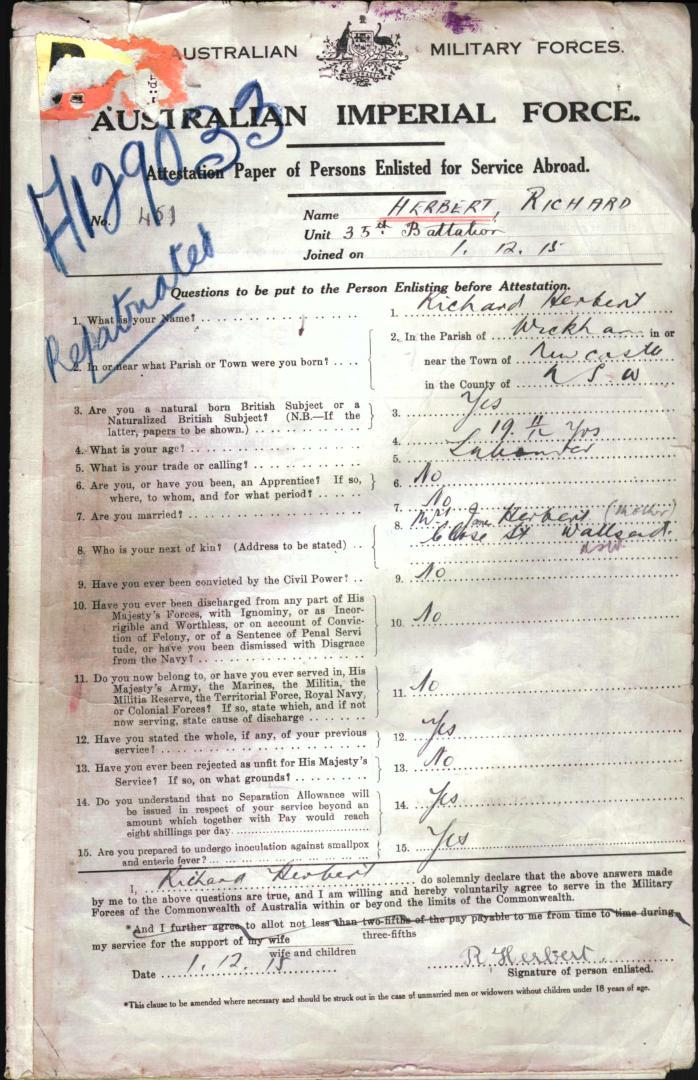 AUSTRALIAN MILITARY FORCES.
AUSTRALIAN IMPERIAL FORCE.
H129033
Attestation Paper of Persons Enlisted for Service Abroad.
No. 451
Name HERBERT, RICHARD
Unit 35th. Battalion
Joined on 1. 12. 15
Repatriated
Questions to be put to the Person Enlisting before Attestation.
1. What is your Name? 1. Richard Herbert
2. In or near what Parish or Town were you born? 2. In the Parish of Wickham in or
near the Town of Newcastle
in the County of N S W
3. Are you a natural born British Subject or a
Naturalized British Subject? (N.B.—If the
latter, papers to be shown.) 3. Yes
4. What is your age? 4. 19 11/12 Yrs
5. What is your trade or calling? 5. Labourer
6. Are you, or have you been, an Apprentice? If so,
where, to whom, and for what period? 6. No
7. Are you married? 7. No
8. Who is your next of kin? (Address to be stated) 8. Mrs Jane Herbert (Mother)
Close St Wallsend.
NSW
9. Have you ever been convicted by the Civil Power? 9. No
10. Have you ever been discharged from any part of His
Majesty's Forces, with Ignominy, or as Incor-
rigible and Worthless, or on account of Convic-
tion of Felony, or of a Sentence of Penal Servi
tude, or have you been dismissed with Disgrace
from the Navy? 10. No
11. Do you now belong to, or have you ever served in, His
Majesty's Army, the Marines, the Militia, the
Militia Reserve, the Territorial Force, Royal Navy,
or Colonial Forces? If so, state which, and if not
now serving, state cause of discharge 11. No
12. Have you stated the whole, if any, of your previous
service? 12. Yes
13. Have you ever been rejected as unfit for His Majesty's
Service? If so, on what grounds? 13. No
14. Do you understand that no Separation Allowance will
be issued in respect of your service beyond an
amount which together with Pay would reach
eight shillings per day. 14. Yes
15. Are you prepared to undergo inoculation against smallpox
and enteric fever? 15. Yes
I, Richard Herbert do solemnly declare that the above answers made
by me to the above questions are true, and I am willing and hereby voluntarily agree to serve in the Military
Forces of the Commonwealth of Australia within or beyond the limits of the Commonwealth.
*And I further agree to allot not less than two-fifths of the pay payable to me from time to time during
three-fifths
my service for the support of my wife
wife and children
Date 1. 12. 15 R Herbert.
Signature of person enlisted.
*This clause to be amended where necessary and should be struck out in the case of unmarried men or widowers without children under 18 years of age.